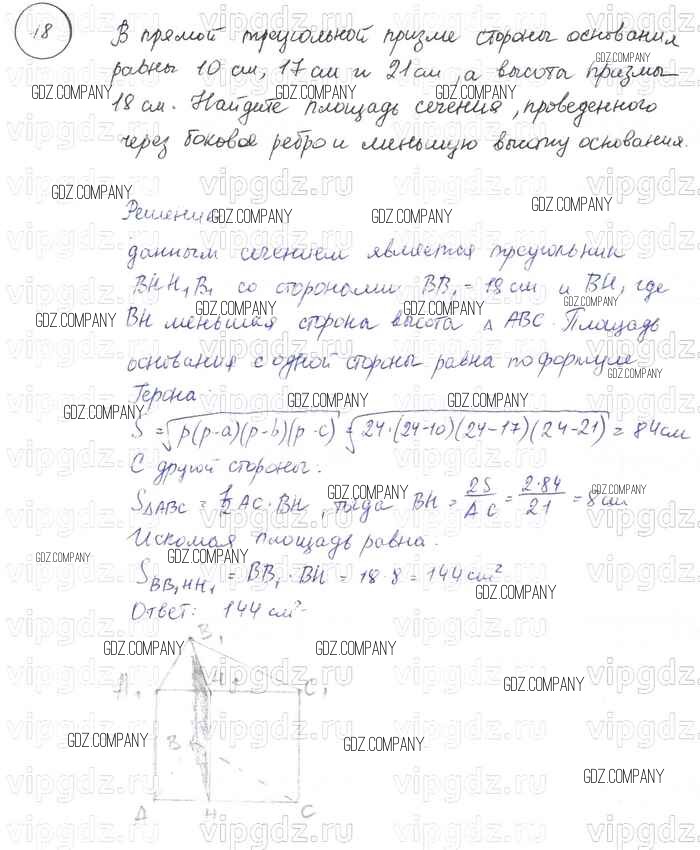 18
В прямой треугольной призме стороны основания
равны 10 см, 17 см и 21 см, а высота призмы
18 см. Найдите площадь сечения, проведенного
через боковое ребро и меньшую высоту основания.
Решение
данным сечением является треугольник
BHH₁B₁ со сторонами BB₁ = 18 см и BH, где
BH меньшая сторона высота △ ABC. Площадь
основания с одной стороны равна по формуле
Герона:
S = √p(p-a)(p-b)(p-c) = √24·(24-10)(24-17)(24-21) = 84 см
С другой стороны:
S△ABC = 1/2 AC · BH, тогда BH = 2S/AC = 2·84/21 = 8 см
Искомая площадь равна:
S BB₁HH₁ = BB₁ · BH = 18·8 = 144 см²
Ответ: 144 см²
B₁
A₁ H₁ C₁
B
A H C
GDZ.COMPANY
vipgdz.ru